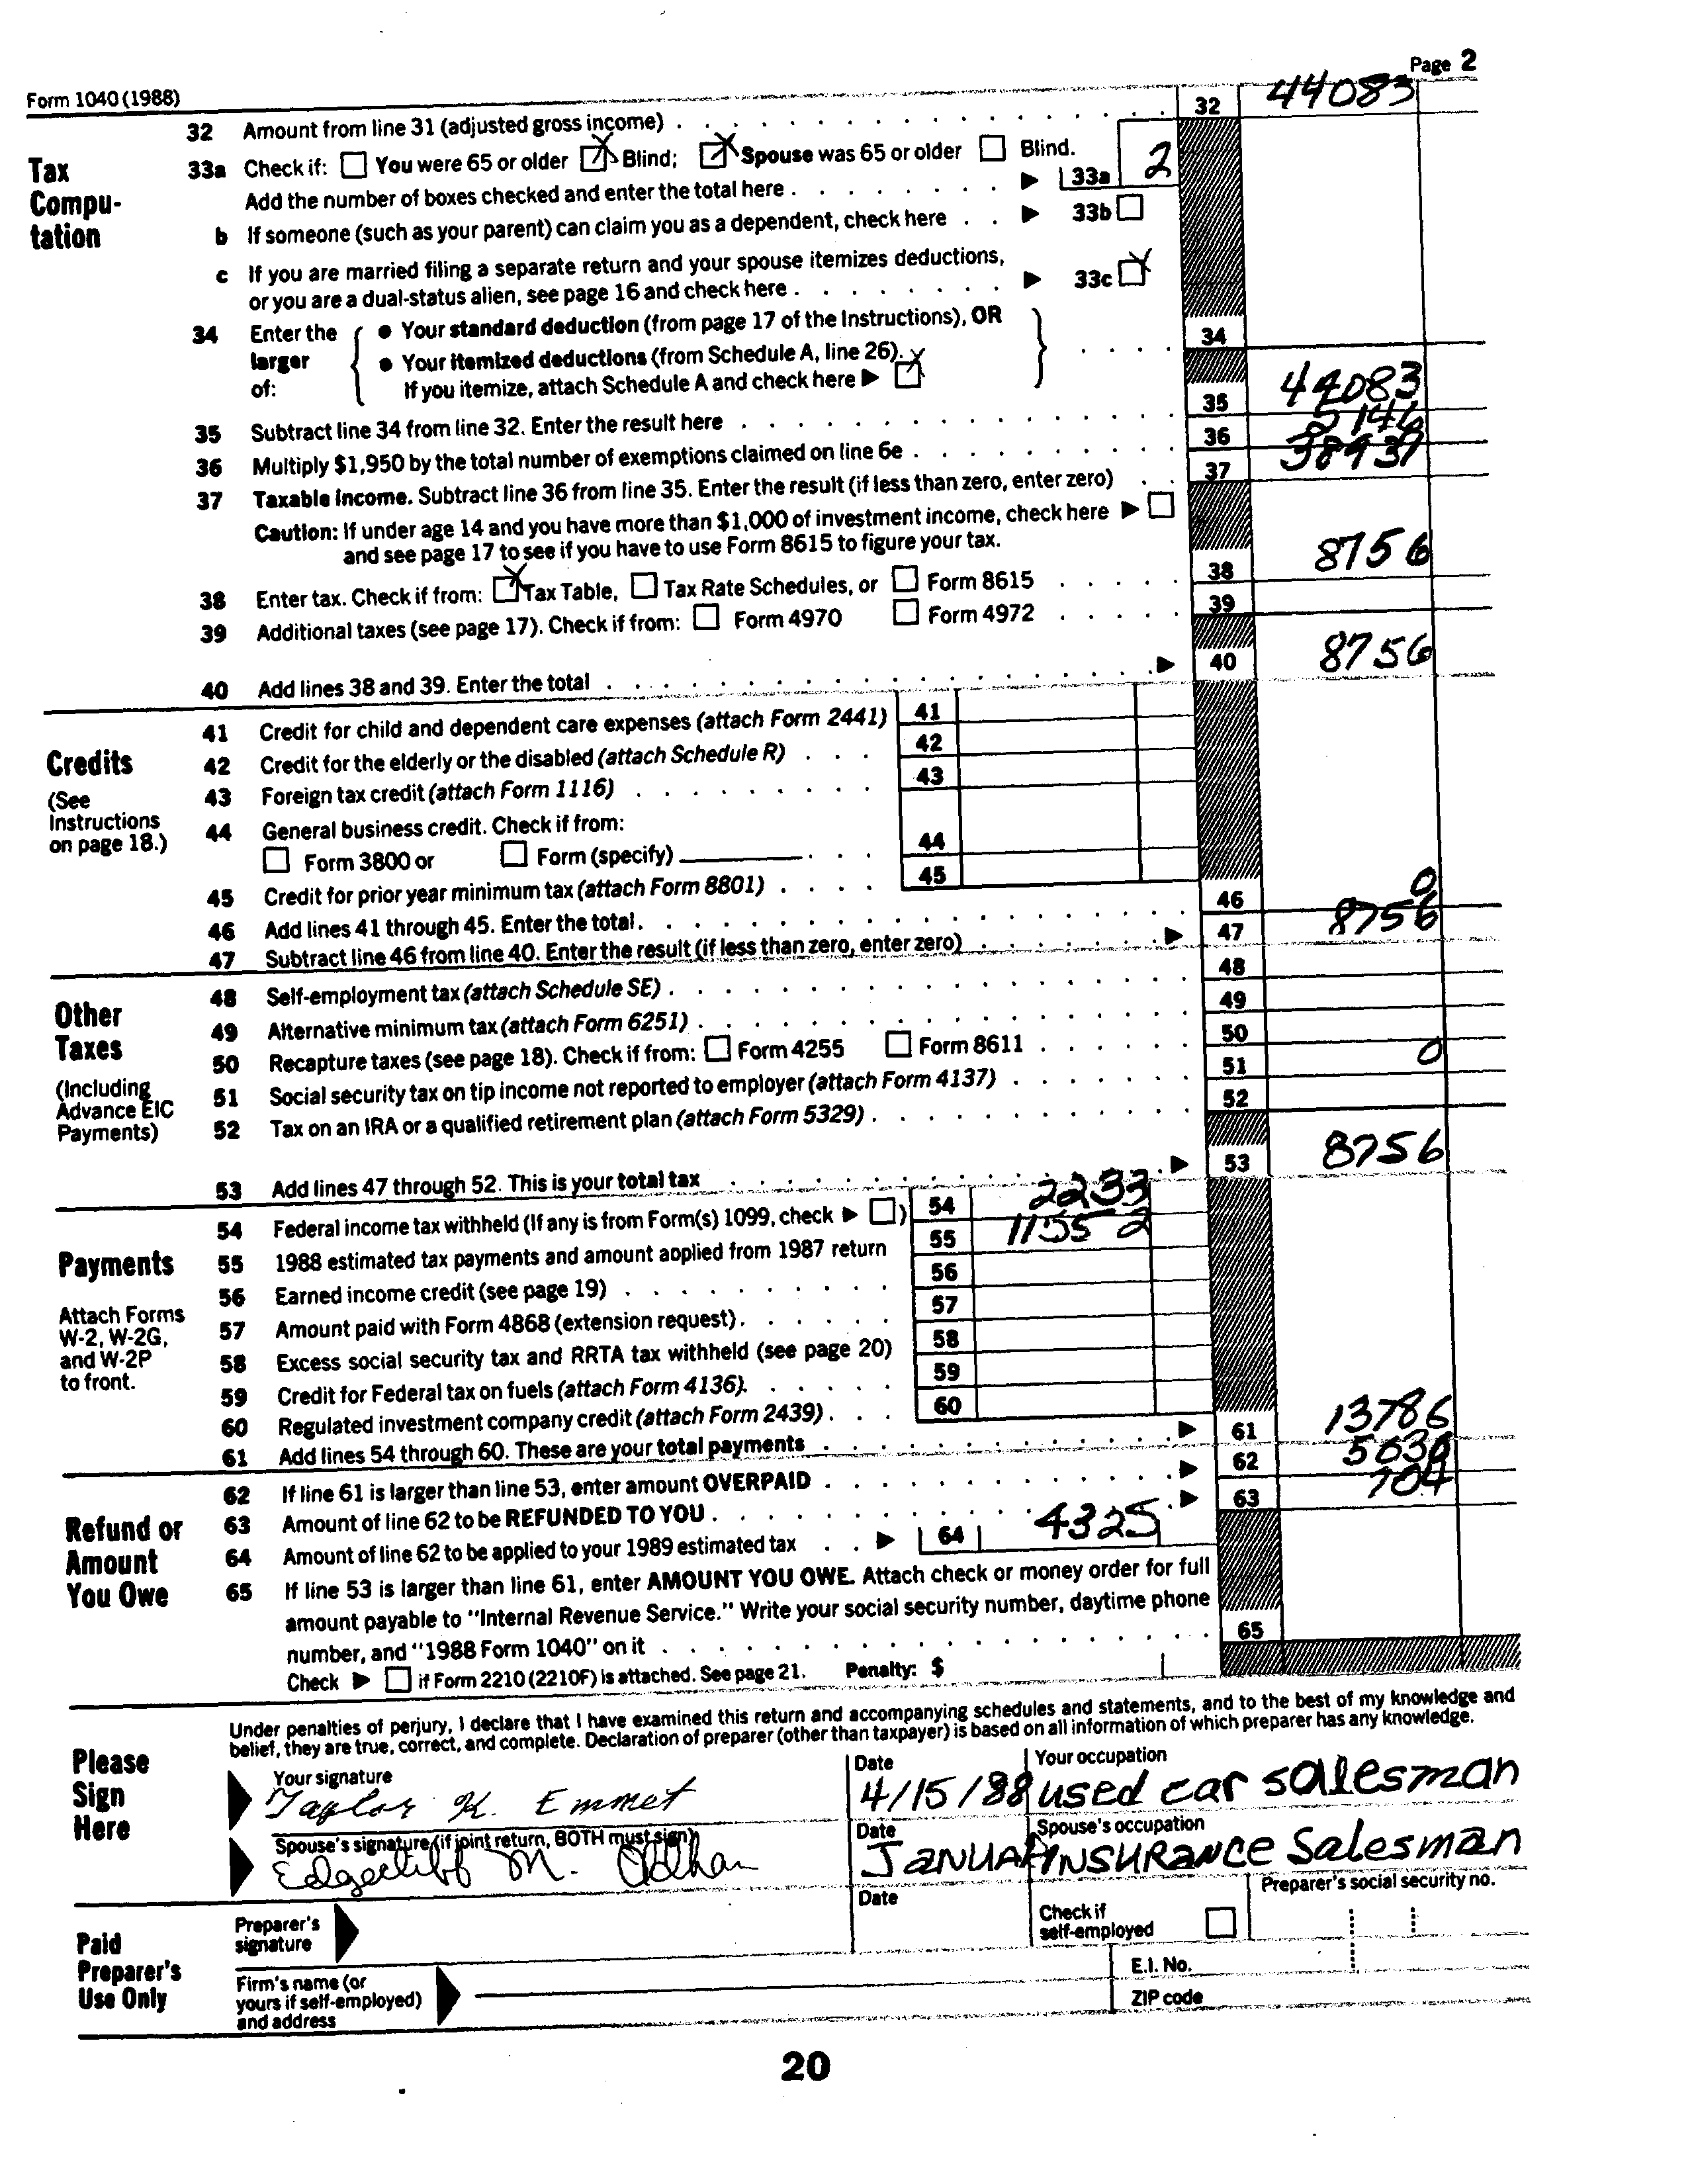 Form 1040 (1988) Page 2
Tax Compu-tation
32 Amount from line 31 (adjusted gross income) 32 44083
33a Check if: You were 65 or older X Blind; X Spouse was 65 or older Blind.
Add the number of boxes checked and enter the total here ▶ 33a 2
b If someone (such as your parent) can claim you as a dependent, check here ▶ 33b
c If you are married filing a separate return and your spouse itemizes deductions,
or you are a dual-status alien, see page 16 and check here ▶ 33c X
34 Enter the larger of: • Your standard deduction (from page 17 of the Instructions), OR
• Your itemized deductions (from Schedule A, line 26). 34
If you itemize, attach Schedule A and check here ▶ X
35 Subtract line 34 from line 32. Enter the result here 35 44083
36 Multiply $1,950 by the total number of exemptions claimed on line 6e 36 5146
37 Taxable income. Subtract line 36 from line 35. Enter the result (if less than zero, enter zero) 37 38937
Caution: If under age 14 and you have more than $1,000 of investment income, check here ▶
and see page 17 to see if you have to use Form 8615 to figure your tax.
38 Enter tax. Check if from: X Tax Table, Tax Rate Schedules, or Form 8615 38 8756
39 Additional taxes (see page 17). Check if from: Form 4970 Form 4972 39
40 Add lines 38 and 39. Enter the total ▶ 40 8756
Credits
(See Instructions on page 18.)
41 Credit for child and dependent care expenses (attach Form 2441) 41
42 Credit for the elderly or the disabled (attach Schedule R) 42
43 Foreign tax credit (attach Form 1116) 43
44 General business credit. Check if from:
Form 3800 or Form (specify) 44
45 Credit for prior year minimum tax (attach Form 8801) 45
46 Add lines 41 through 45. Enter the total 46 0
47 Subtract line 46 from line 40. Enter the result (if less than zero, enter zero) ▶ 47 8756
Other Taxes
(Including Advance EIC Payments)
48 Self-employment tax (attach Schedule SE) 48
49 Alternative minimum tax (attach Form 6251) 49
50 Recapture taxes (see page 18). Check if from: Form 4255 Form 8611 50
51 Social security tax on tip income not reported to employer (attach Form 4137) 51 0
52 Tax on an IRA or a qualified retirement plan (attach Form 5329) 52
53 Add lines 47 through 52. This is your total tax ▶ 53 8756
Payments
Attach Forms W-2, W-2G, and W-2P to front.
54 Federal income tax withheld (If any is from Form(s) 1099, check ▶ ) 54 2233
55 1988 estimated tax payments and amount applied from 1987 return 55 11552
56 Earned income credit (see page 19) 56
57 Amount paid with Form 4868 (extension request) 57
58 Excess social security tax and RRTA tax withheld (see page 20) 58
59 Credit for Federal tax on fuels (attach Form 4136) 59
60 Regulated investment company credit (attach Form 2439) 60
61 Add lines 54 through 60. These are your total payments ▶ 61 13786
Refund or Amount You Owe
62 If line 61 is larger than line 53, enter amount OVERPAID ▶ 62 5030
63 Amount of line 62 to be REFUNDED TO YOU ▶ 63 704
64 Amount of line 62 to be applied to your 1989 estimated tax ▶ 64 4325
65 If line 53 is larger than line 61, enter AMOUNT YOU OWE. Attach check or money order for full
amount payable to "Internal Revenue Service." Write your social security number, daytime phone
number, and "1988 Form 1040" on it 65
Check ▶ if Form 2210 (2210F) is attached. See page 21. Penalty: $
Please Sign Here
Under penalties of perjury, I declare that I have examined this return and accompanying schedules and statements, and to the best of my knowledge and
belief, they are true, correct, and complete. Declaration of preparer (other than taxpayer) is based on all information of which preparer has any knowledge.
Your signature Date Your occupation
Taylor K. Emmet 4/15/88 used car salesman
Spouse's signature (if joint return, BOTH must sign) Date Spouse's occupation
M. Oldham INSURANCE Salesman
Paid Preparer's Use Only
Preparer's signature Date Check if self-employed Preparer's social security no.
Firm's name (or yours if self-employed) and address E.I. No.
ZIP code
20